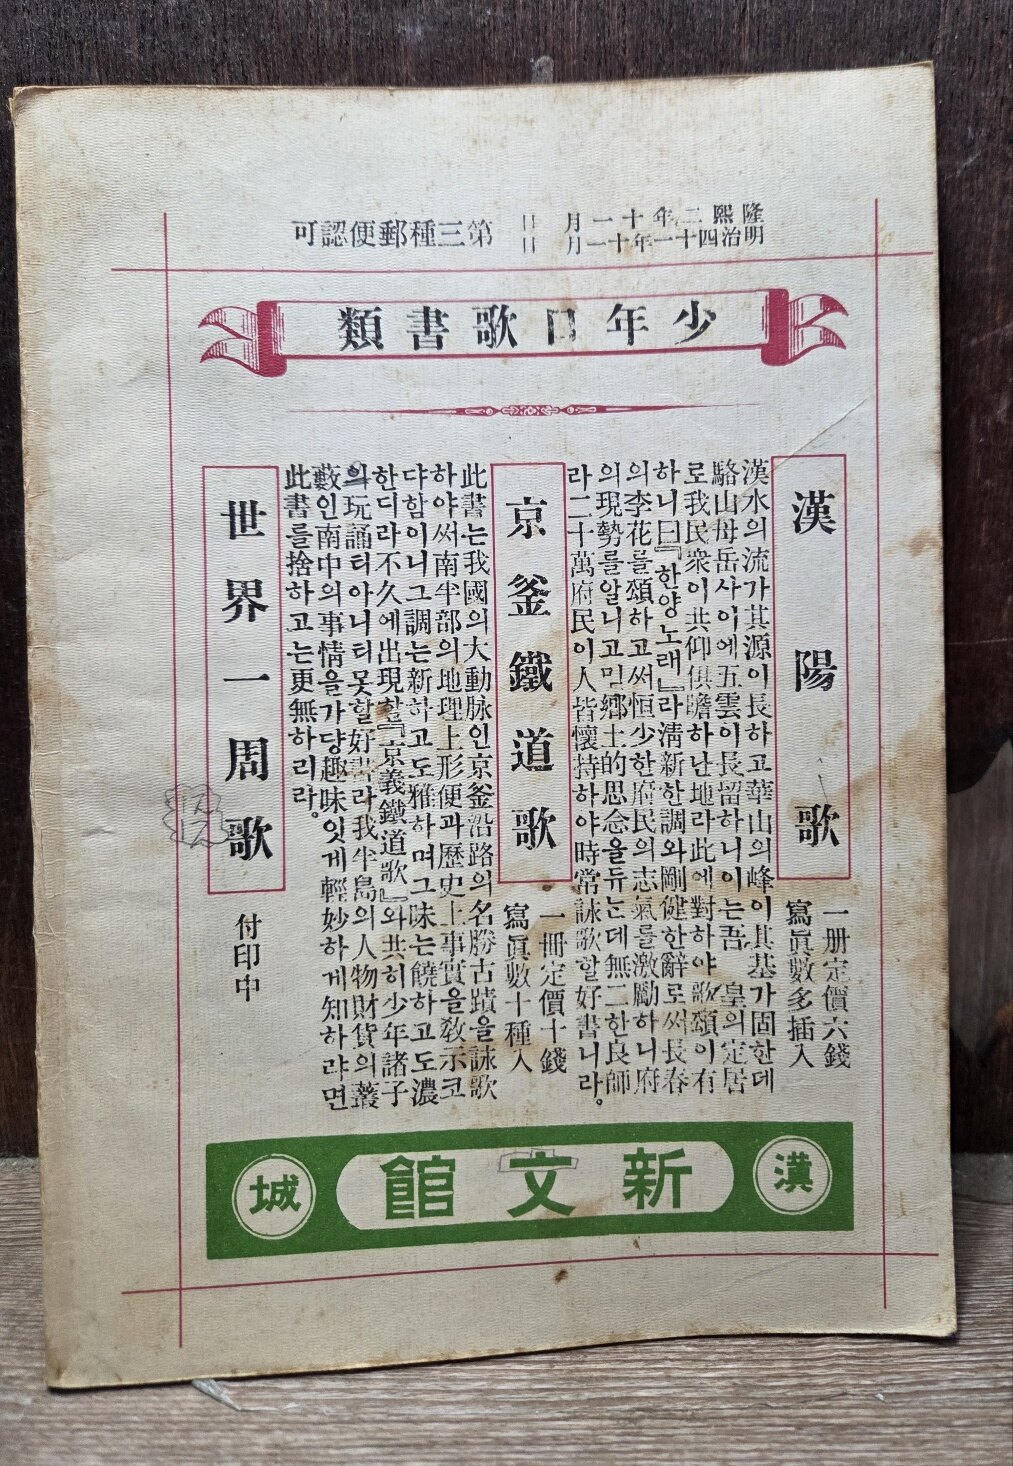 隆熙二年十一月 日
明治四十一年十一月 日
第三種郵便認可
少年口歌書類
漢陽歌
一册定價六錢
寫眞數多揷入
漢水의流가其源이長하고華山의峰이其基가固한데
駱山母岳사이에五雲이長留하니이는吾 皇의定居
로我民衆이共仰俱瞻하난地라此에對하야歌頌이有
하니曰『한양노래』라淸新한調와剛健한辭로써長春
의李花를頌하고써恒少한府民의志氣를激勵하니府
의現勢를알니고민鄕土的思念을듀난데無二한良師
라二十萬府民이人皆懷持하야時常詠歌할好書니라。
京釜鐵道歌
一冊定價十錢
寫眞數十種入
此書는我國의大動脉인京釜沿路의名勝古蹟을詠歌
하야써南半部의地理上形便과歷史上事實을敎示코
댜함이니그調는新하고도雅하며그味는饒하고도濃
한디라不久에出現할『京義鐵道歌』와共히少年諸子
의玩誦티아니티못할好書라我半島의人物財貨의叢
藪인南中의事情을가댱趣味잇게輕妙하게知하랴면
此書를捨하고는更無하리라。
世界一周歌
付印中
漢
新文館
城